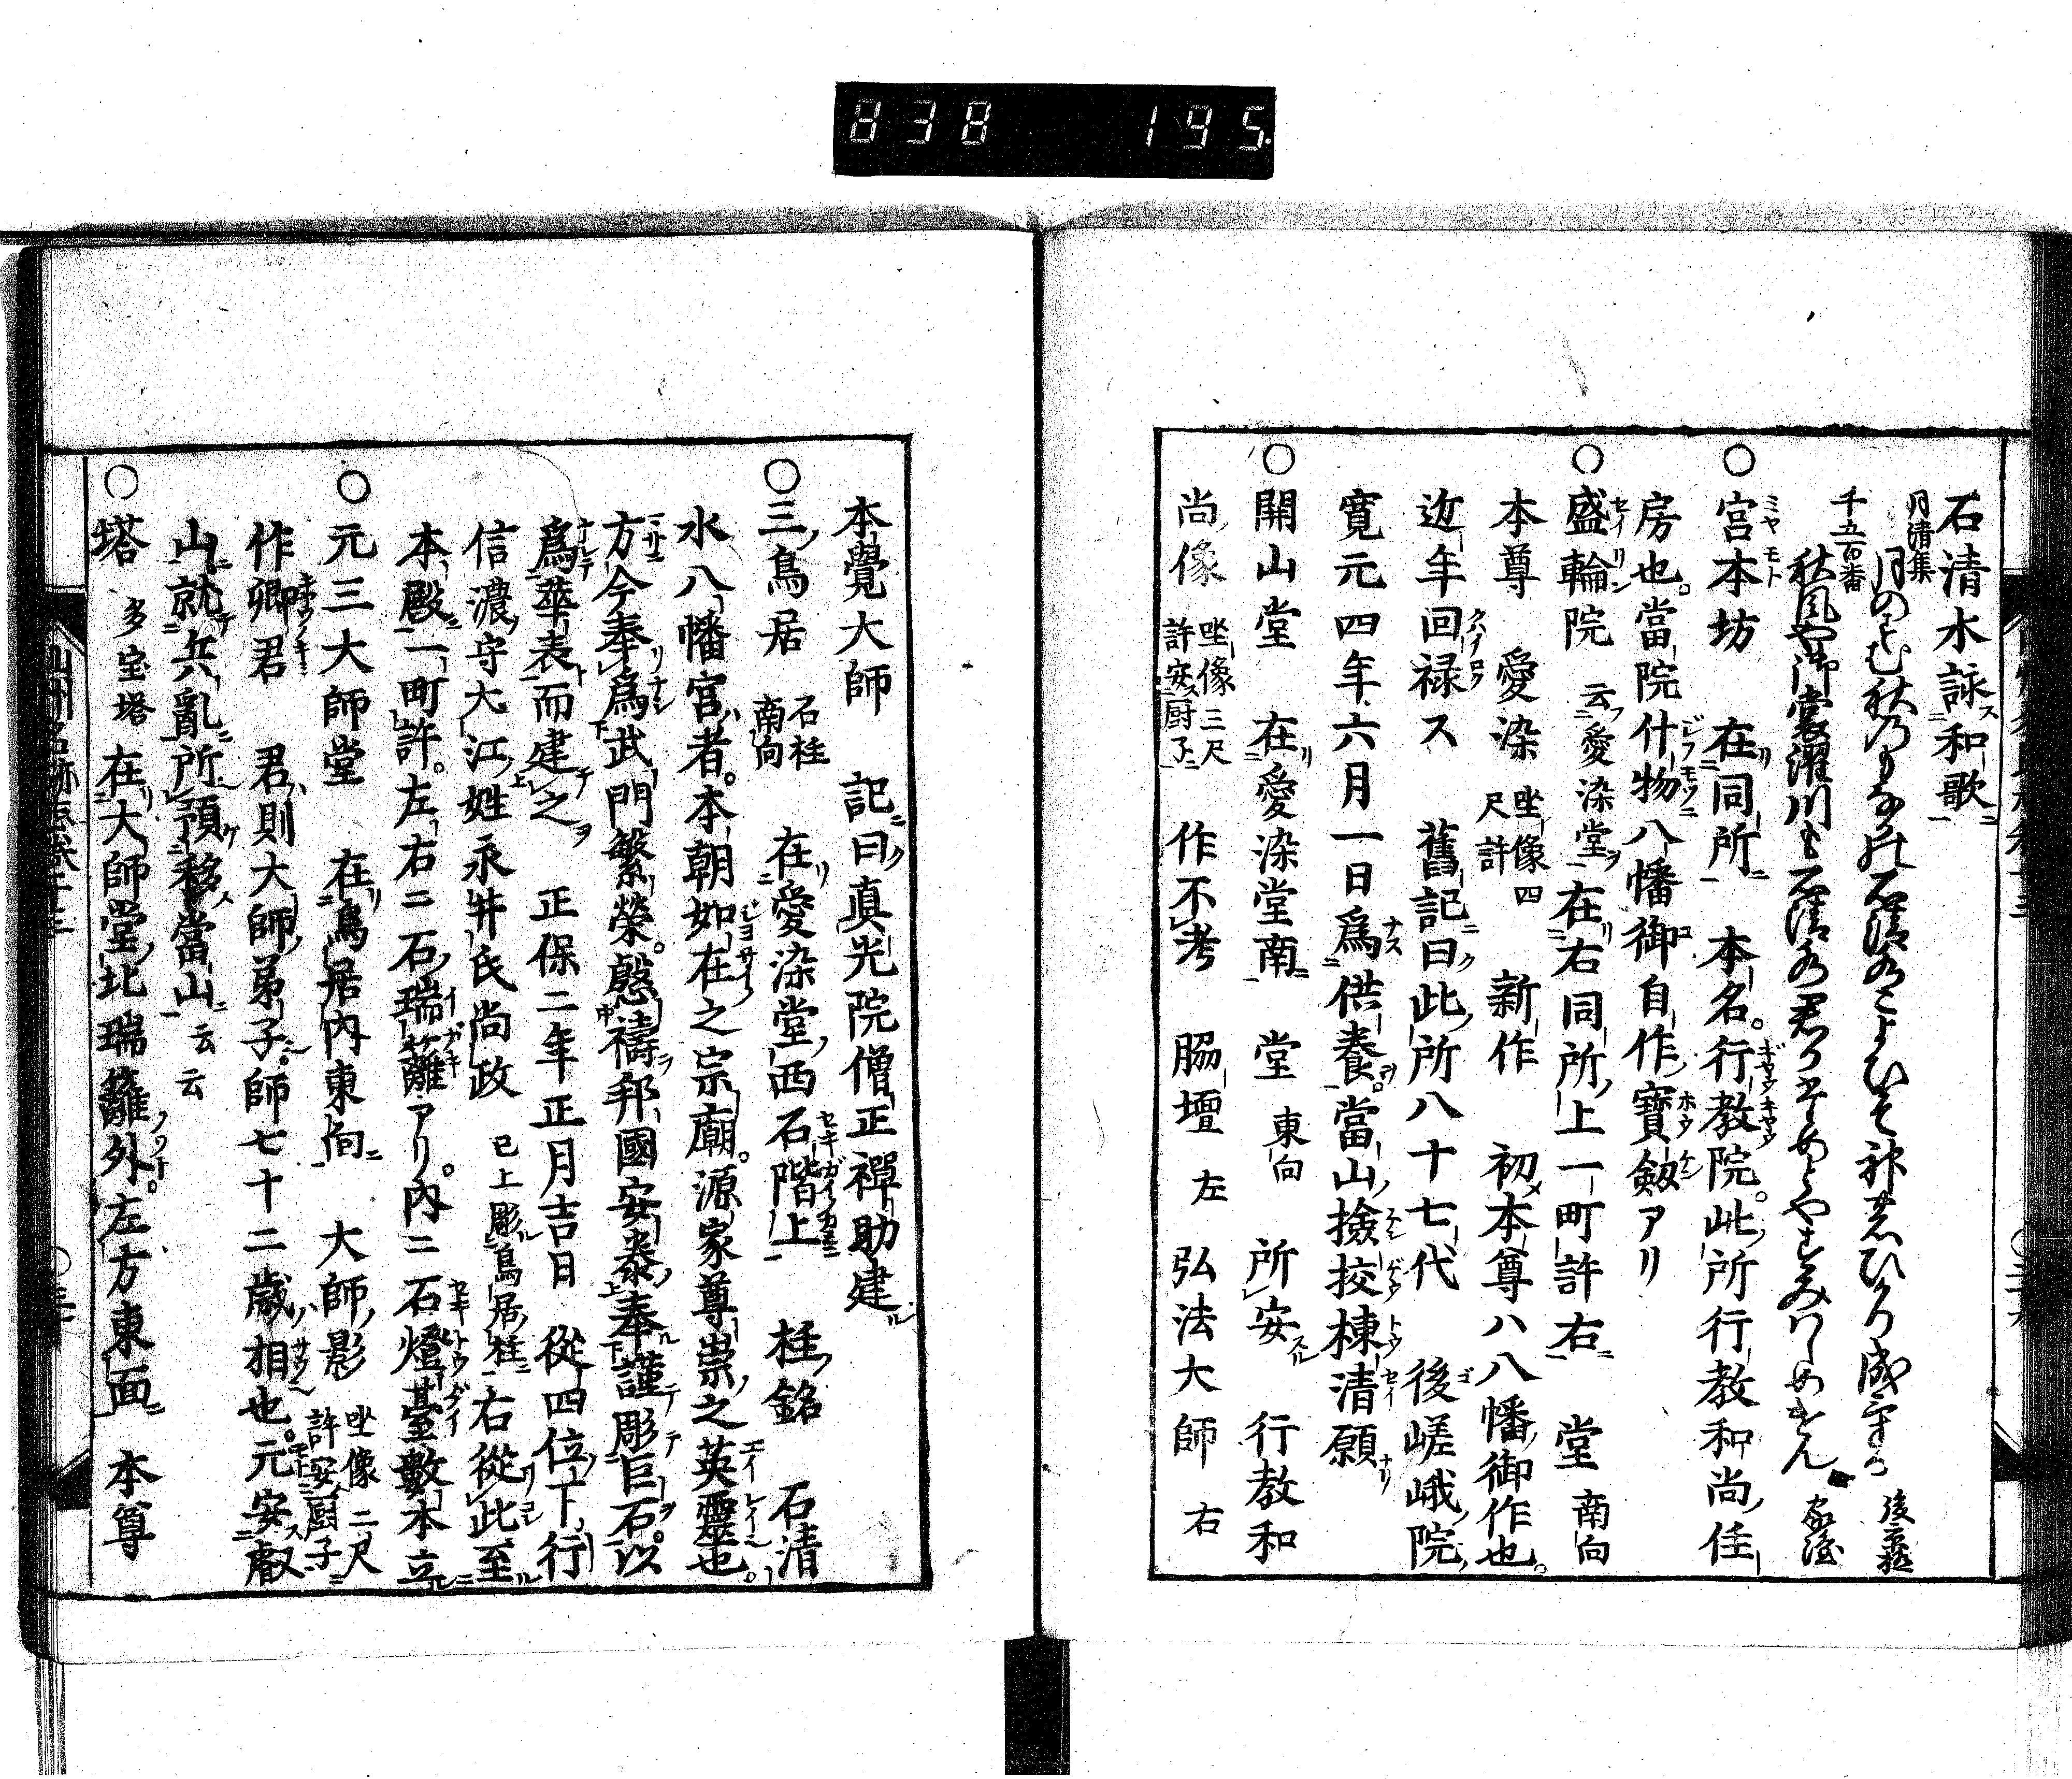 838 195.
石清水詠和歌
月清集
千五百番
秋風や
宮本坊 在同所 本名行教院此所行教和尚住
房也。當院什物八幡御自作寶劔アリ
盛輪院 云愛染堂 在右同所上一町許右 堂 南向
本尊 愛染 坐像四尺許 新作 初本尊ハ八幡御作也。
近年回禄ス 舊記曰此所八十七代 後嵯峨院
寛元四年六月一日爲供養。當山撿挍棟清願
開山堂 在愛染堂南 堂 東向 所安 行教和
尚像 坐像三尺許安厨子 作不考 脇壇 左 弘法大師 右
本覺大師 記曰真光院僧正禪助建
三鳥居 石柱南向 在愛染堂西石階上 柱銘 石清
水八幡宮者。本朝如在之宗廟。源家尊崇之英靈也。
方今奉爲武門繁榮。慇禱邦國安泰奉謹彫巨石。以
爲華表而建之 正保二年正月吉日 從四位下行
信濃守大江姓永井氏尚政 已上彫鳥居柱 右從此至
本殿一町許。左右ニ石瑞籬アリ。内ニ石燈臺數本立
元三大師堂 在鳥居内東向 大師影 坐像二尺許安厨子
作卿君 君則大師弟子。師七十二歳相也。元安叡
山就兵亂所預移當山云云
塔 多宝塔 在大師堂北瑞籬外。左方東面 本尊